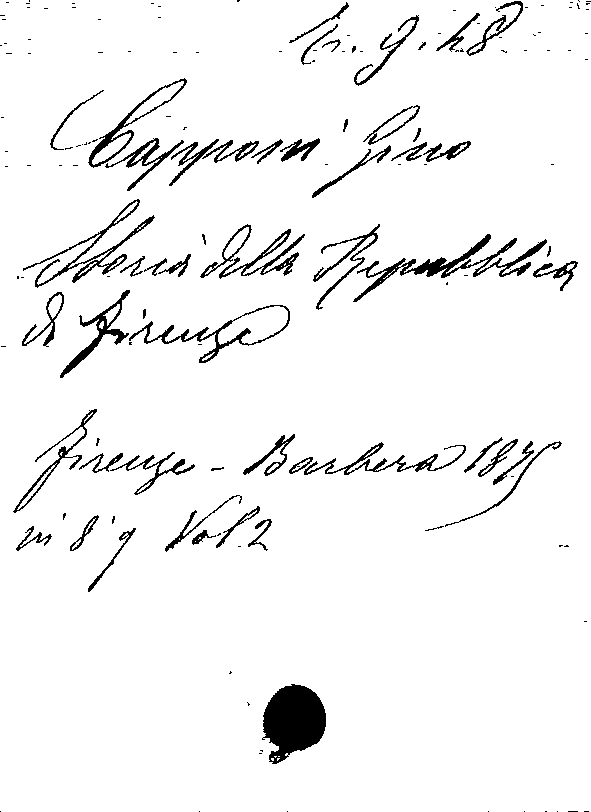 E. g. 48
Capponi Gino
Storia della Repubblica
di Firenze
Firenze - Barbera 1875
in 8° g Vol 2